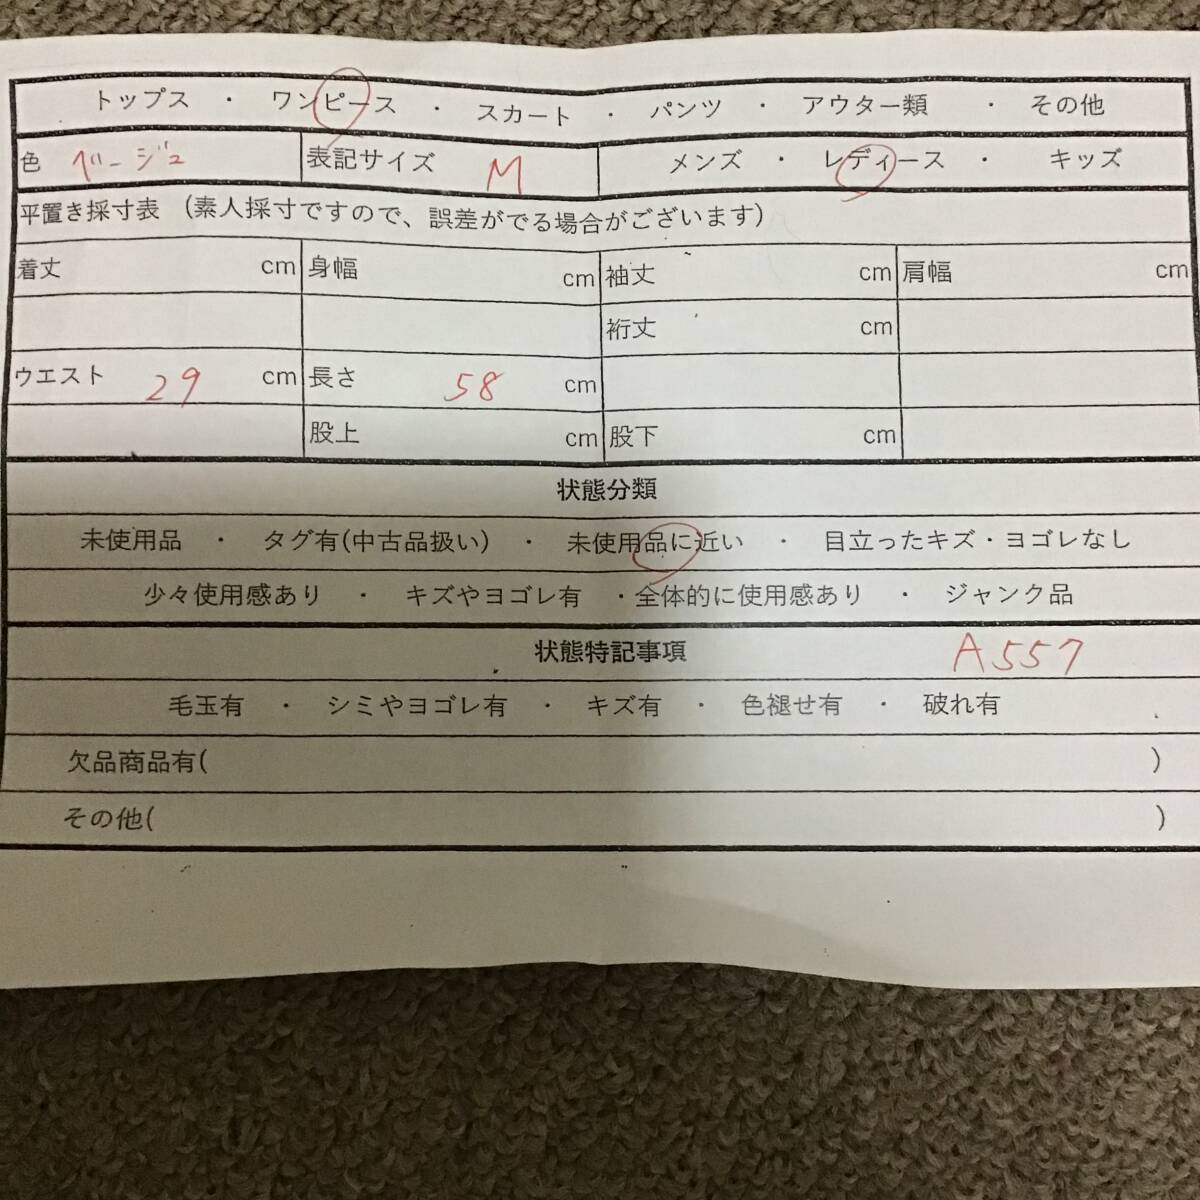 トップス ・ ワンピース ・ スカート ・ パンツ ・ アウター類 ・ その他
色 ベージュ 表記サイズ M メンズ ・ レディース ・ キッズ
平置き採寸表 (素人採寸ですので、誤差がでる場合がございます)
着丈 cm 身幅 cm 袖丈 cm 肩幅 cm
裄丈 cm
ウエスト 29 cm 長さ 58 cm
股上 cm 股下 cm
状態分類
未使用品 ・ タグ有(中古品扱い) ・ 未使用品に近い ・ 目立ったキズ・ヨゴレなし
少々使用感あり ・ キズやヨゴレ有 ・全体的に使用感あり ・ ジャンク品
状態特記事項 A557
毛玉有 ・ シミやヨゴレ有 ・ キズ有 ・ 色褪せ有 ・ 破れ有
欠品商品有( )
その他( )